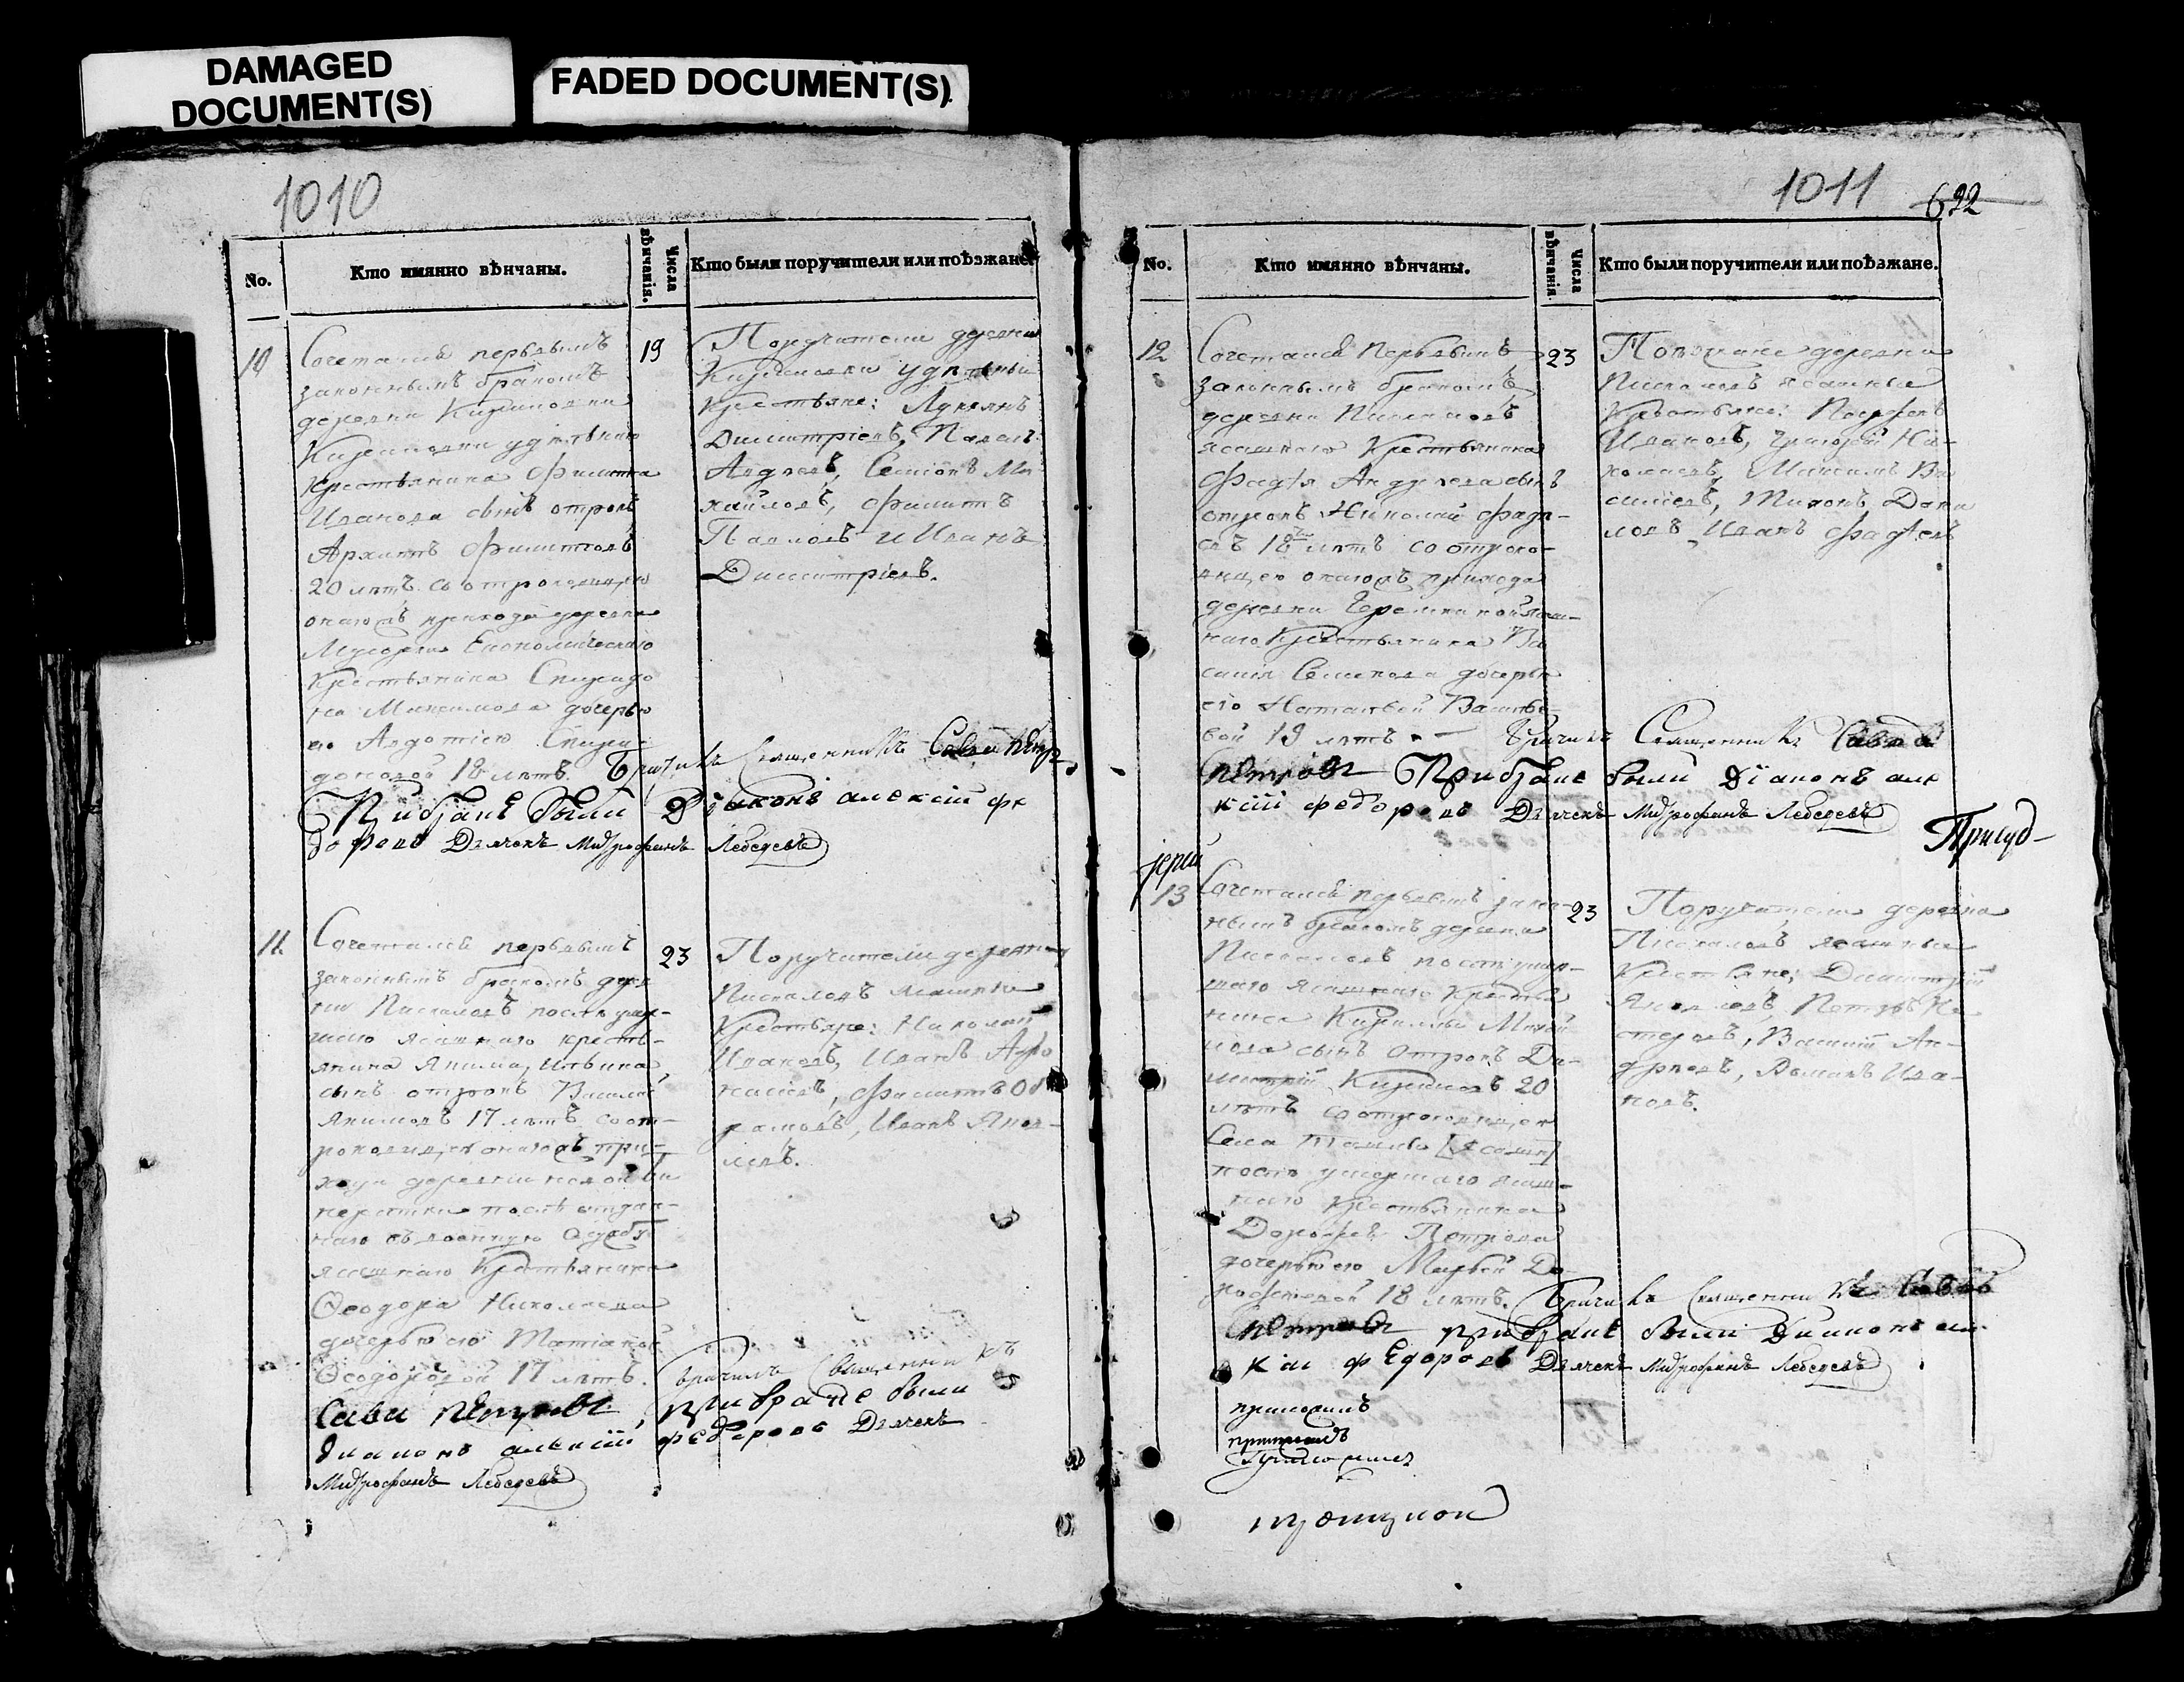 DAMAGED
DOCUMENT(S)
FADED DOCUMENT(S)
1010
No.
Кто имянно вѣнчаны.
Числа вѣнчанія.
Кто были поручители или поѣзжане.
10
Сочетались первымъ
законнымъ бракомъ
деревни
удѣльнаго
крестьянина Филипа
Иванова сынъ отрокъ
Архипъ Филиповъ
20 лѣтъ со отроковицею
прихода деревни
Економическаго
Крестьянина Спиридо
на Максимова дочерью
его Авдотією Спири
доновой 18 лѣтъ. Вричилъ Священникъ Сава Петр
Прибраке были Діаконъ алексій фе
доровъ Дьячекъ Митрофанъ Лебедевъ
19
Поручители деревни
удѣльныи
Крестьяне: Лукьянъ
Димитріевъ, Павелъ
Андреевъ, Семіонъ Ми
хайловъ, Филипъ
Павловъ и Иванъ
Димитріевъ.
11.
Сочетались первымъ
законнымъ бракомъ дерев
ни Пискаловъ послѣ умер-
шаго ясашнаго кресть-
янина Якима Ильина
сынъ отрокъ Василій
Якимовъ 17 лѣтъ со от-
роковицею при-
хода деревни
послѣ отдан-
наго въ военную службу
ясашнаго Крестьянина
Ѳеодора Николаева
дочерью его Татіаной
Ѳеодоровой 17 лѣтъ. вричилъ Священникъ
Сава Петровъ, прибраке были
Диаконъ алексій федоровъ Дьячекъ
Митрофанъ Лебедевъ
23
Поручители деревни
Пискаловъ ясашные
Крестьяне: Николай
Ивановъ, Иванъ Афо
насіевъ, Филипъ Об
рамовъ, Иванъ Яков-
левъ.
1011
622
No.
Кто имянно вѣнчаны.
Числа вѣнчанія.
Кто были поручители или поѣзжане.
12
Сочетались Первымъ
законнымъ бракомъ
деревни Пискаловъ
ясашнаго Крестьянина
Фадѣя Андреева сынъ
отрокъ Николай Фадѣ-
евъ 18 лѣтъ со отроко-
вицею прихода
деревни ясаш-
наго Крестьянина Ва
силія Семенова дочерью
его Наталіей Василье-
вой 19 лѣтъ. Вричилъ Священникъ Сава
Петровъ Прибраке были Діаконъ але
ксій федоровъ Дьячекъ Митрофанъ Лебедевъ
23
Поѣзжане деревни
Пискаловъ ясашные
Крестьяне:
Ивановъ, Григорій Ни-
колаевъ, Максимъ Ва
силіевъ, Тихонъ Дани
ловъ, Иванъ Фадѣевъ
13
Сочетались первымъ закон-
нымъ бракомъ деревни
Пискаловъ послѣ умер-
шаго ясашнаго Крестья
нина Кирилы Михай
лова сынъ отрокъ Ди-
митрій Кириловъ 20
лѣтъ со отроковицею
Села
послѣ умершаго ясаш-
наго Крестьянина
Дорофея Петрова
дочерью его Марьей До-
рофеевой 18 лѣтъ. Вричилъ Священникъ Сава
Петровъ прибраке были Диаконъ але
ксій федоровъ Дьячекъ Митрофанъ Лебедевъ
23
Поручители деревни
Пискаловъ ясашные
Крестьяне: Димитрій
Яковлевъ, Петръ Не
стеровъ, Василій Ан-
дреевъ, Романъ Ива-
новъ.